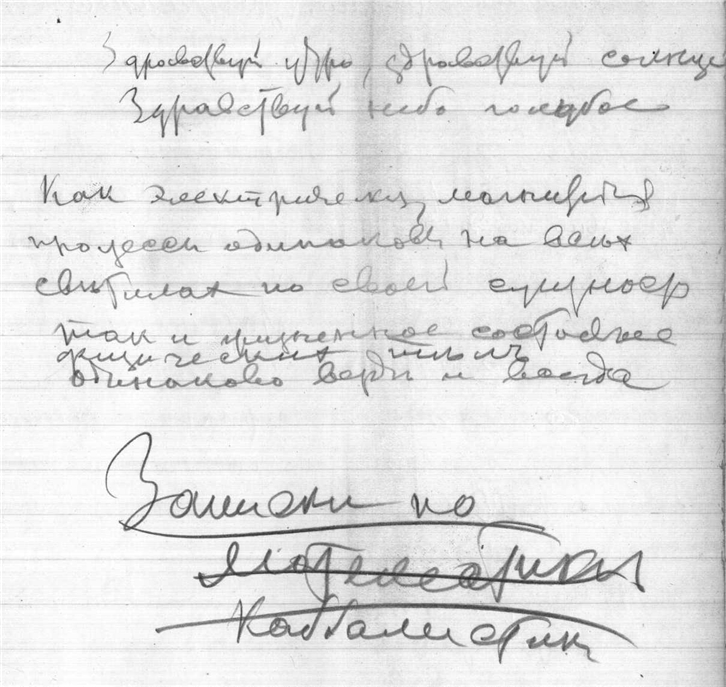 Здравствуй утро, здравствуй солнце
Здравствуй небо голубое
Как электрически, магнитны
процессы одинаковы на всех
свѣтилах по своей сущности
так и жизненное состояние
физических тѣлъ
одинаково везде и всегда
Записки по
Математики
Каббалистик